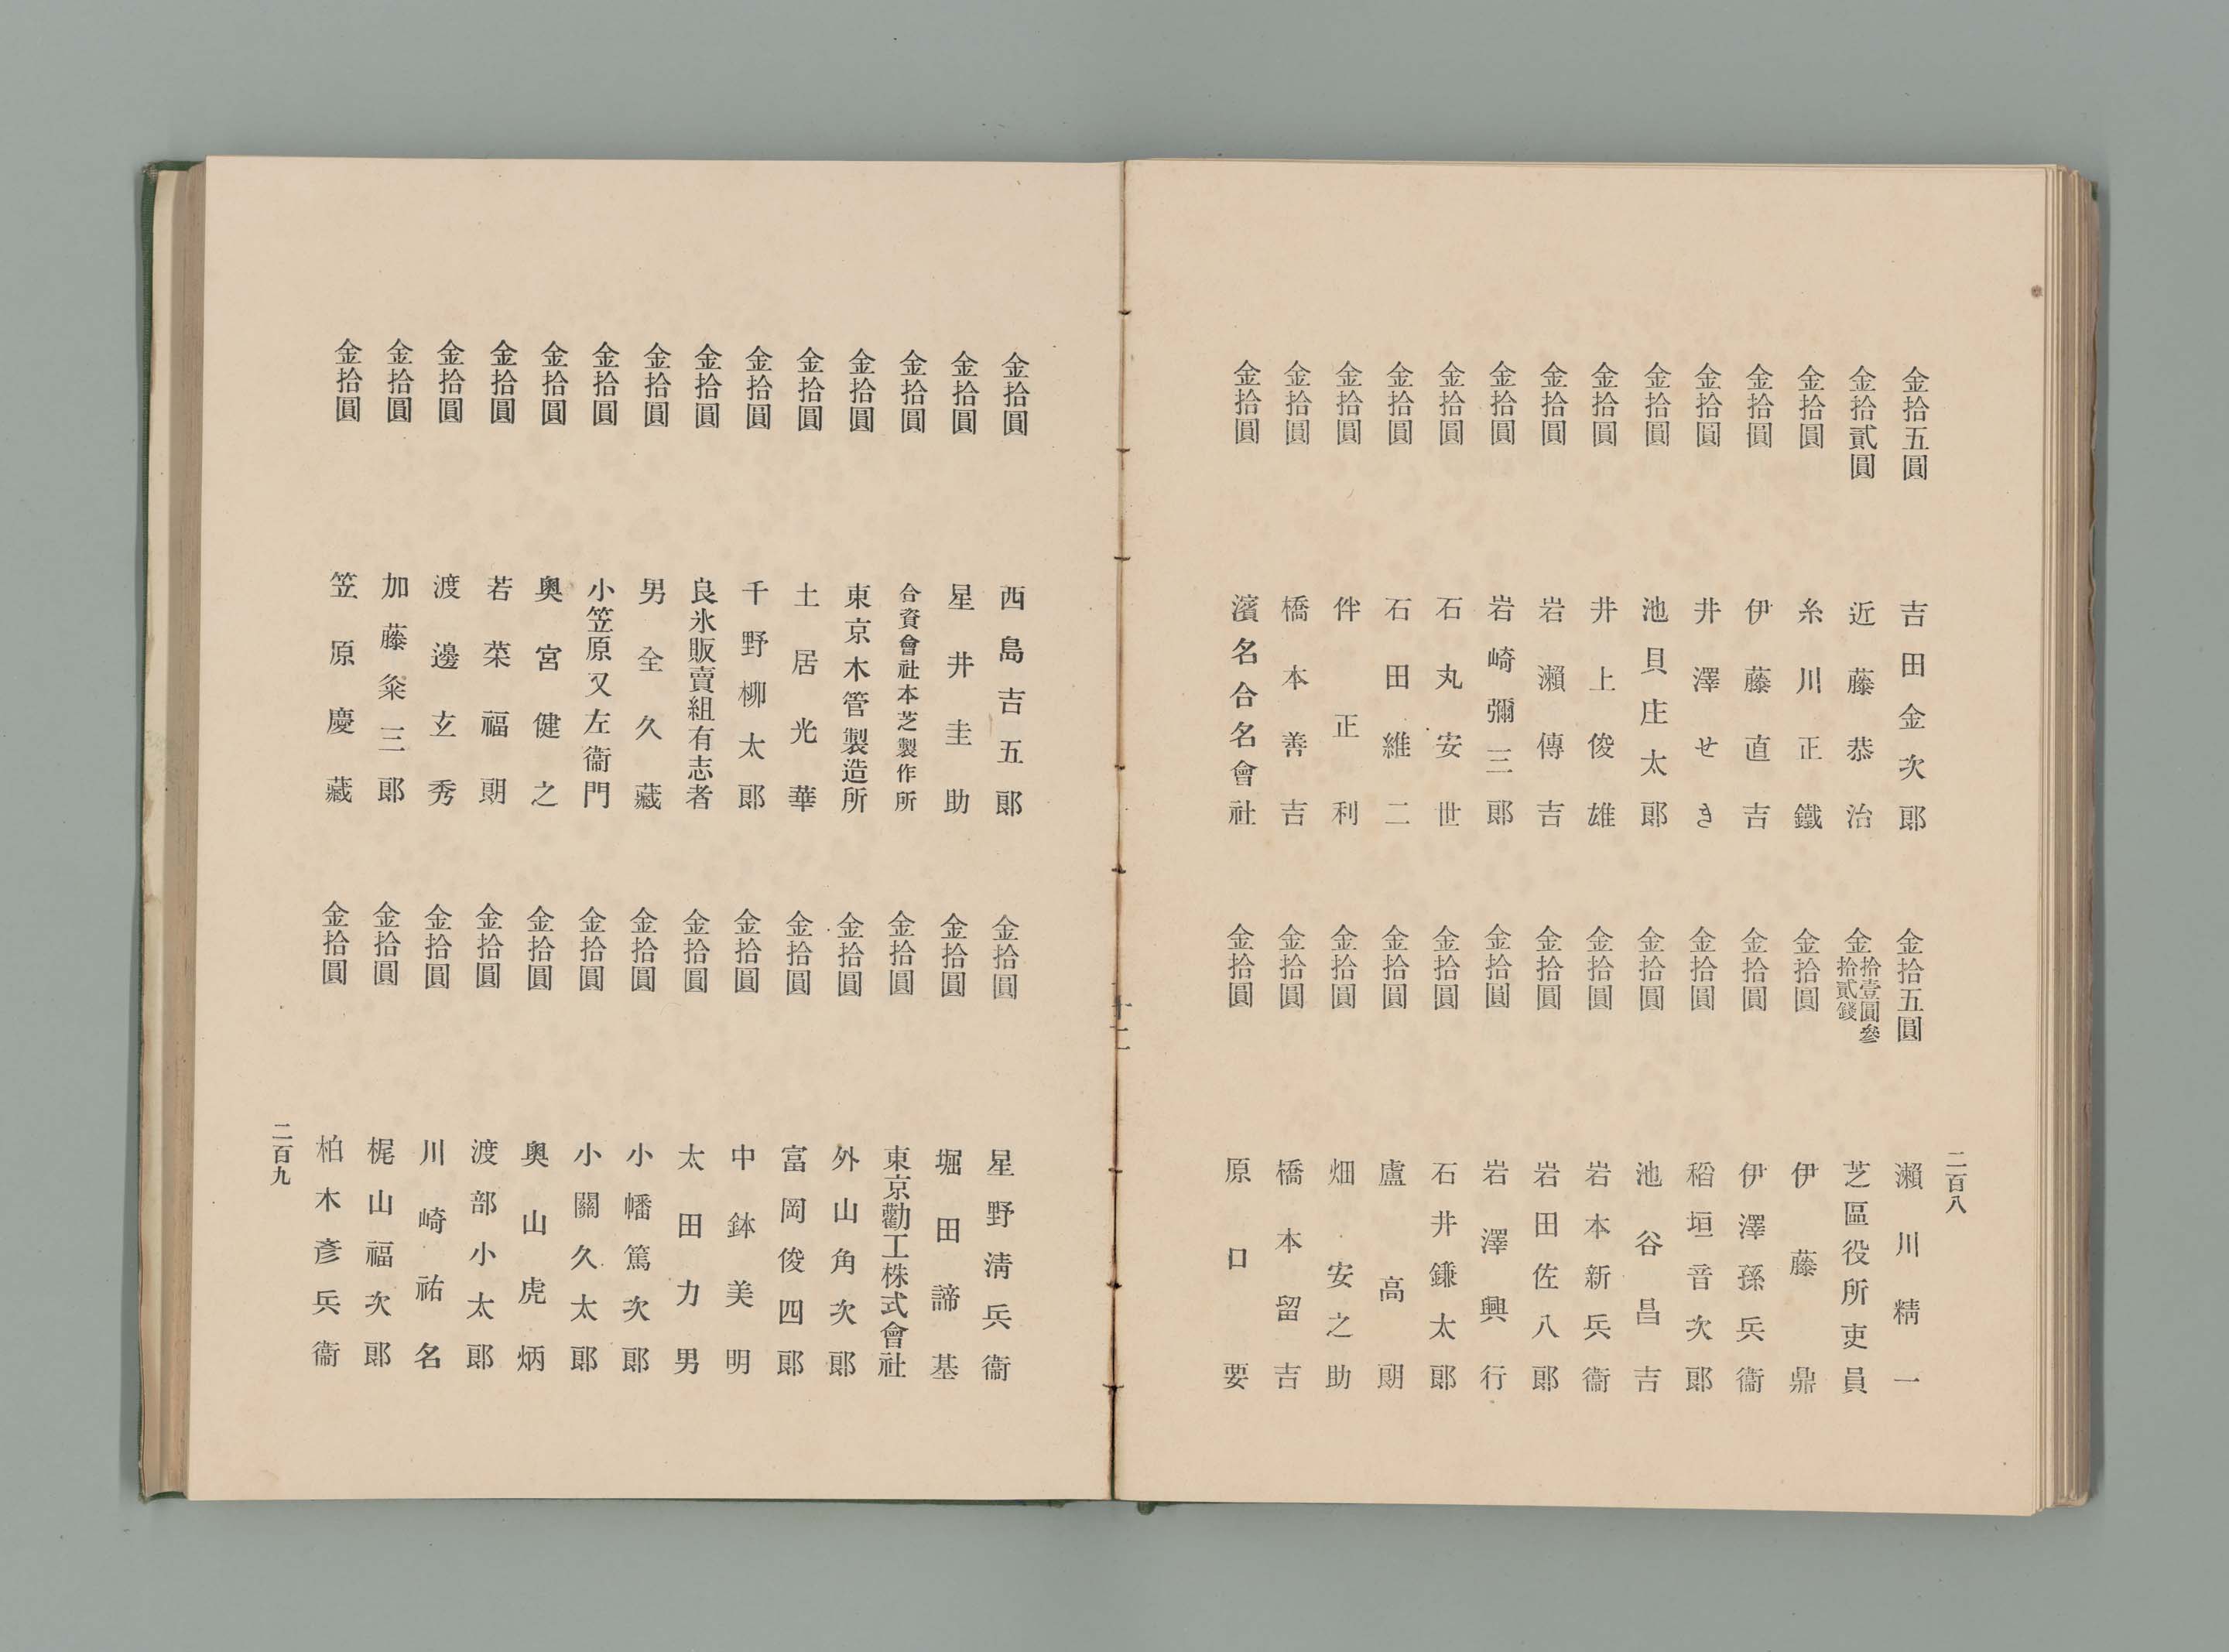 金拾五圓 吉田金次郎
金拾貳圓 近藤恭治
金拾圓 糸川正鐵
金拾圓 伊藤直吉
金拾圓 井澤せき
金拾圓 池貝庄太郎
金拾圓 井上俊雄
金拾圓 岩瀨傳吉
金拾圓 岩崎彌三郎
金拾圓 石丸安世
金拾圓 石田維二
金拾圓 伴正利
金拾圓 橋本善吉
金拾圓 濱名合名會社
金拾五圓 瀨川精一
金拾壹圓參拾貳錢 芝區役所吏員
金拾圓 伊藤鼎
金拾圓 伊澤孫兵衞
金拾圓 稻垣音次郎
金拾圓 池谷昌吉
金拾圓 岩本新兵衞
金拾圓 岩田佐八郎
金拾圓 岩澤興行
金拾圓 石井鎌太郎
金拾圓 盧高朗
金拾圓 畑安之助
金拾圓 橋本留吉
金拾圓 原口要
二百八
金拾圓 西島吉五郎
金拾圓 星井圭助
金拾圓 合資會社本芝製作所
金拾圓 東京木管製造所
金拾圓 土居光華
金拾圓 千野柳太郎
金拾圓 良氷販賣組有志者
金拾圓 男全久藏
金拾圓 小笠原又左衞門
金拾圓 奧宮健之
金拾圓 若菜福朗
金拾圓 渡邊玄秀
金拾圓 加藤粂三郎
金拾圓 笠原慶藏
金拾圓 星野淸兵衞
金拾圓 堀田諦基
金拾圓 東京勸工株式會社
金拾圓 外山角次郎
金拾圓 富岡俊四郎
金拾圓 中鉢美明
金拾圓 太田力男
金拾圓 小幡篤次郎
金拾圓 小關久太郎
金拾圓 奧山虎炳
金拾圓 渡部小太郎
金拾圓 川崎祐名
金拾圓 梶山福次郎
金拾圓 柏木彥兵衞
二百九